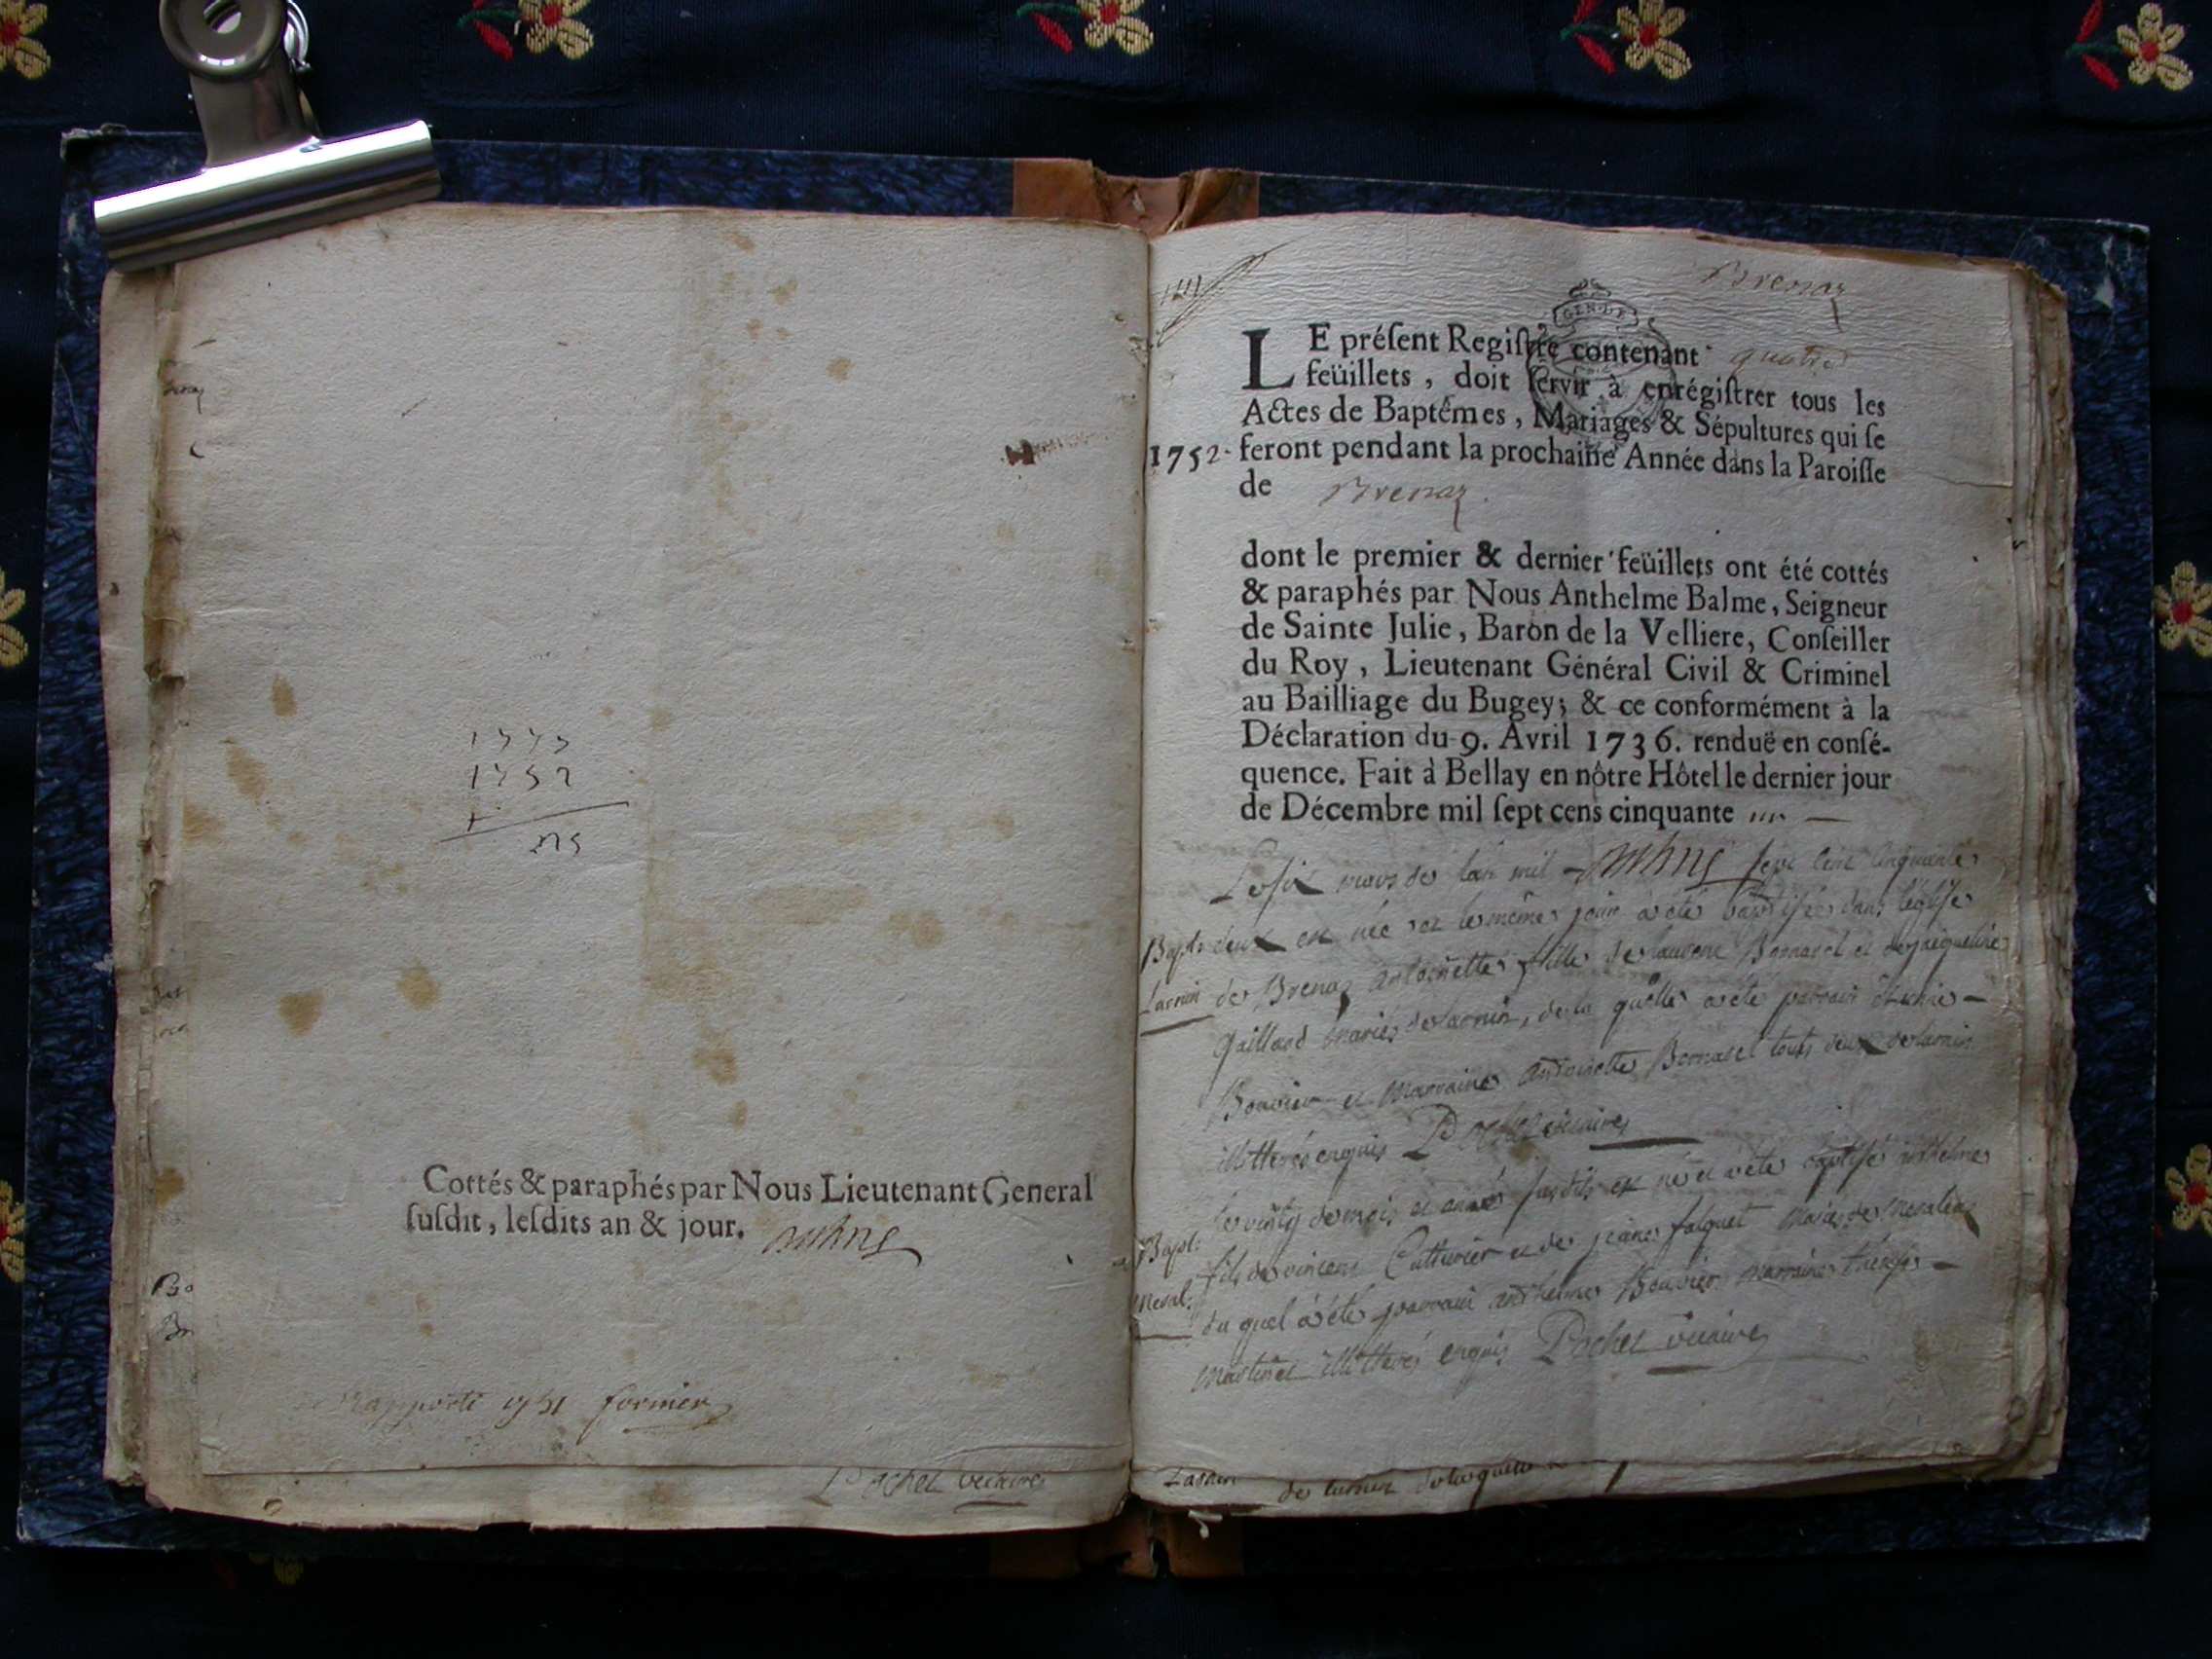 1752
Cottés & paraphés par Nous Lieutenant General
ſuſdit, leſdits an & jour.
Rapporté 1751 fornier
Pochet vicaire
Brenaz
GEN·DE
LE préſent Regiſtre contenant quatre
feüillets, doit ſervir à enrégiſtrer tous les
Actes de Baptêmes, Mariages & Sépultures qui ſe
1752. feront pendant la prochaine Année dans la Paroiſſe
de Brenaz.
dont le premier & dernier feüillets ont été cottés
& paraphés par Nous Anthelme Balme, Seigneur
de Sainte Julie, Baron de la Velliere, Conſeiller
du Roy, Lieutenant Général Civil & Criminel
au Bailliage du Bugey; & ce conformément à la
Déclaration du 9. Avril 1736. renduë en conſé-
quence. Fait à Bellay en nôtre Hôtel le dernier jour
de Décembre mil ſept cens cinquante
mars de lan mil sept cent cinquante
Bapt. deux est née et le même jour a été baptisée dans l'église
Larnin de Brenaz antoinette fille de laurent et de jacqueline
Gaillard mariés de larnin, de la quelle a été parrain
Bouvier et marraine antoinette touts deux de larnin
illitterés enquis Pochet vicaire
le vingt de mois et année susdits est né et a été baptisé anthelme
Bapt. fils de vincent Cutturier et de jeane falquet mariés de
meral. du quel a été parrain anthelme Bouvier marraine
martinet illitterés enquis Pochet vicaire
Larnin de larnin de laquelle